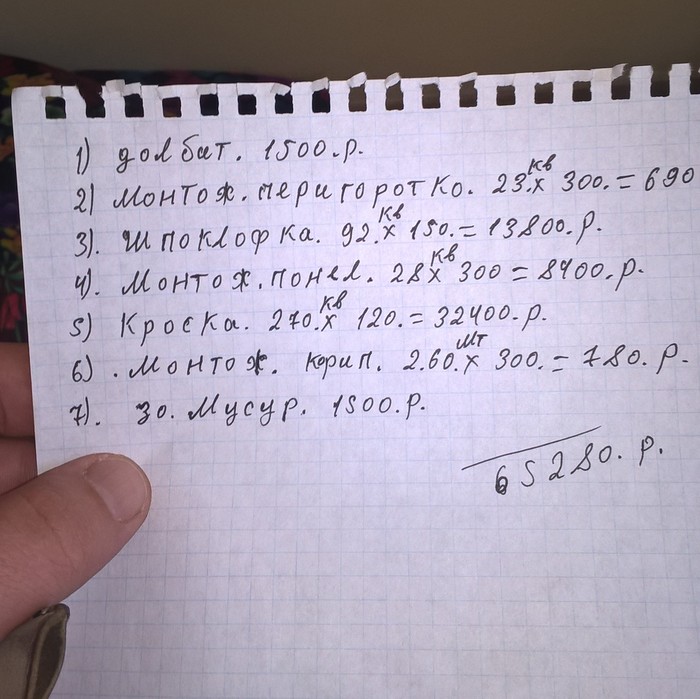 1) долбит. 1500.р.
2) Монтож.перигоротко. 23.х кв 300.=690
3). шпоклофка. 92.х кв 150.=13800.р.
4). Монтож.понел. 28х кв 300=8400.р.
5) Кроска. 270.х кв 120.=32400.р.
6). Монтож. корип. 2.60.х мт 300.=780.р.
7). зо. Мусур. 1500.р.
65280.р.